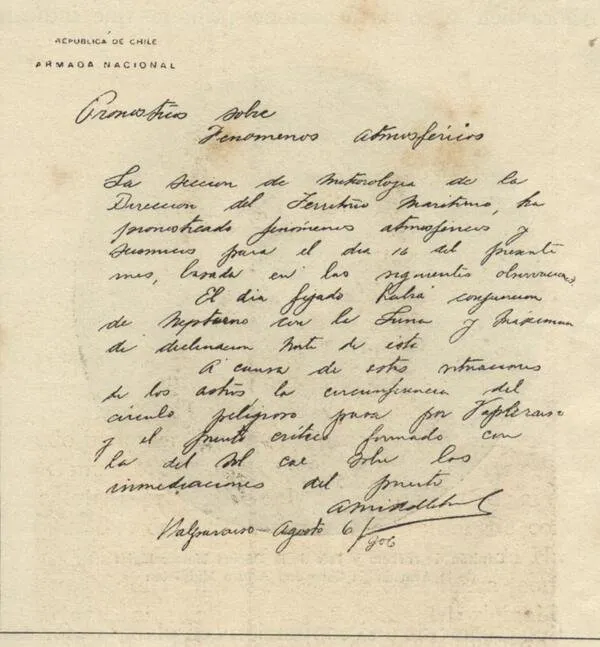 REPUBLICA DE CHILE
ARMADA NACIONAL
Pronosticos sobre
Fenomenos atmosféricos
La seccion de meteorologia de la
Direccion del Territorio Maritimo, ha
pronosticado fenómenos atmosféricos y
sismicos para el dia 16 del presente
mes, basada en las siguientes observaciones
El dia fijado habrá conjuncion
de Neptuno con la Luna y máximum
de declinacion norte de esta
A causa de estas situaciones
de los astros la circunferencia del
círculo peligroso pasa por Valparaiso
y el punto crítico formado con
la del sol cae sobre las
inmediaciones del puerto
Valparaiso Agosto 6/906